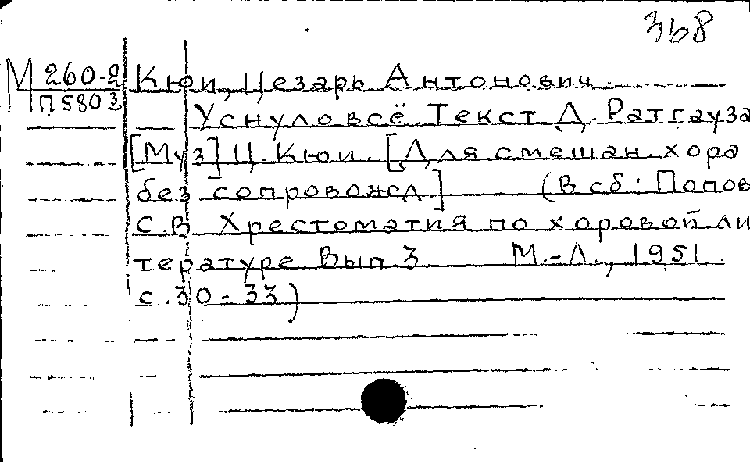 368
М 260-2 Кюи, Цезарь Антонович
П5803 Уснуло всё Текст Д. Ратгауза
[Муз] Ц. Кюи. [Для смешан хора
без сопровожд] (В сб: Попов
С.В Хрестоматия по хоровой ли
тературе Вып 3 М.-Л., 1951.
с.30-33)